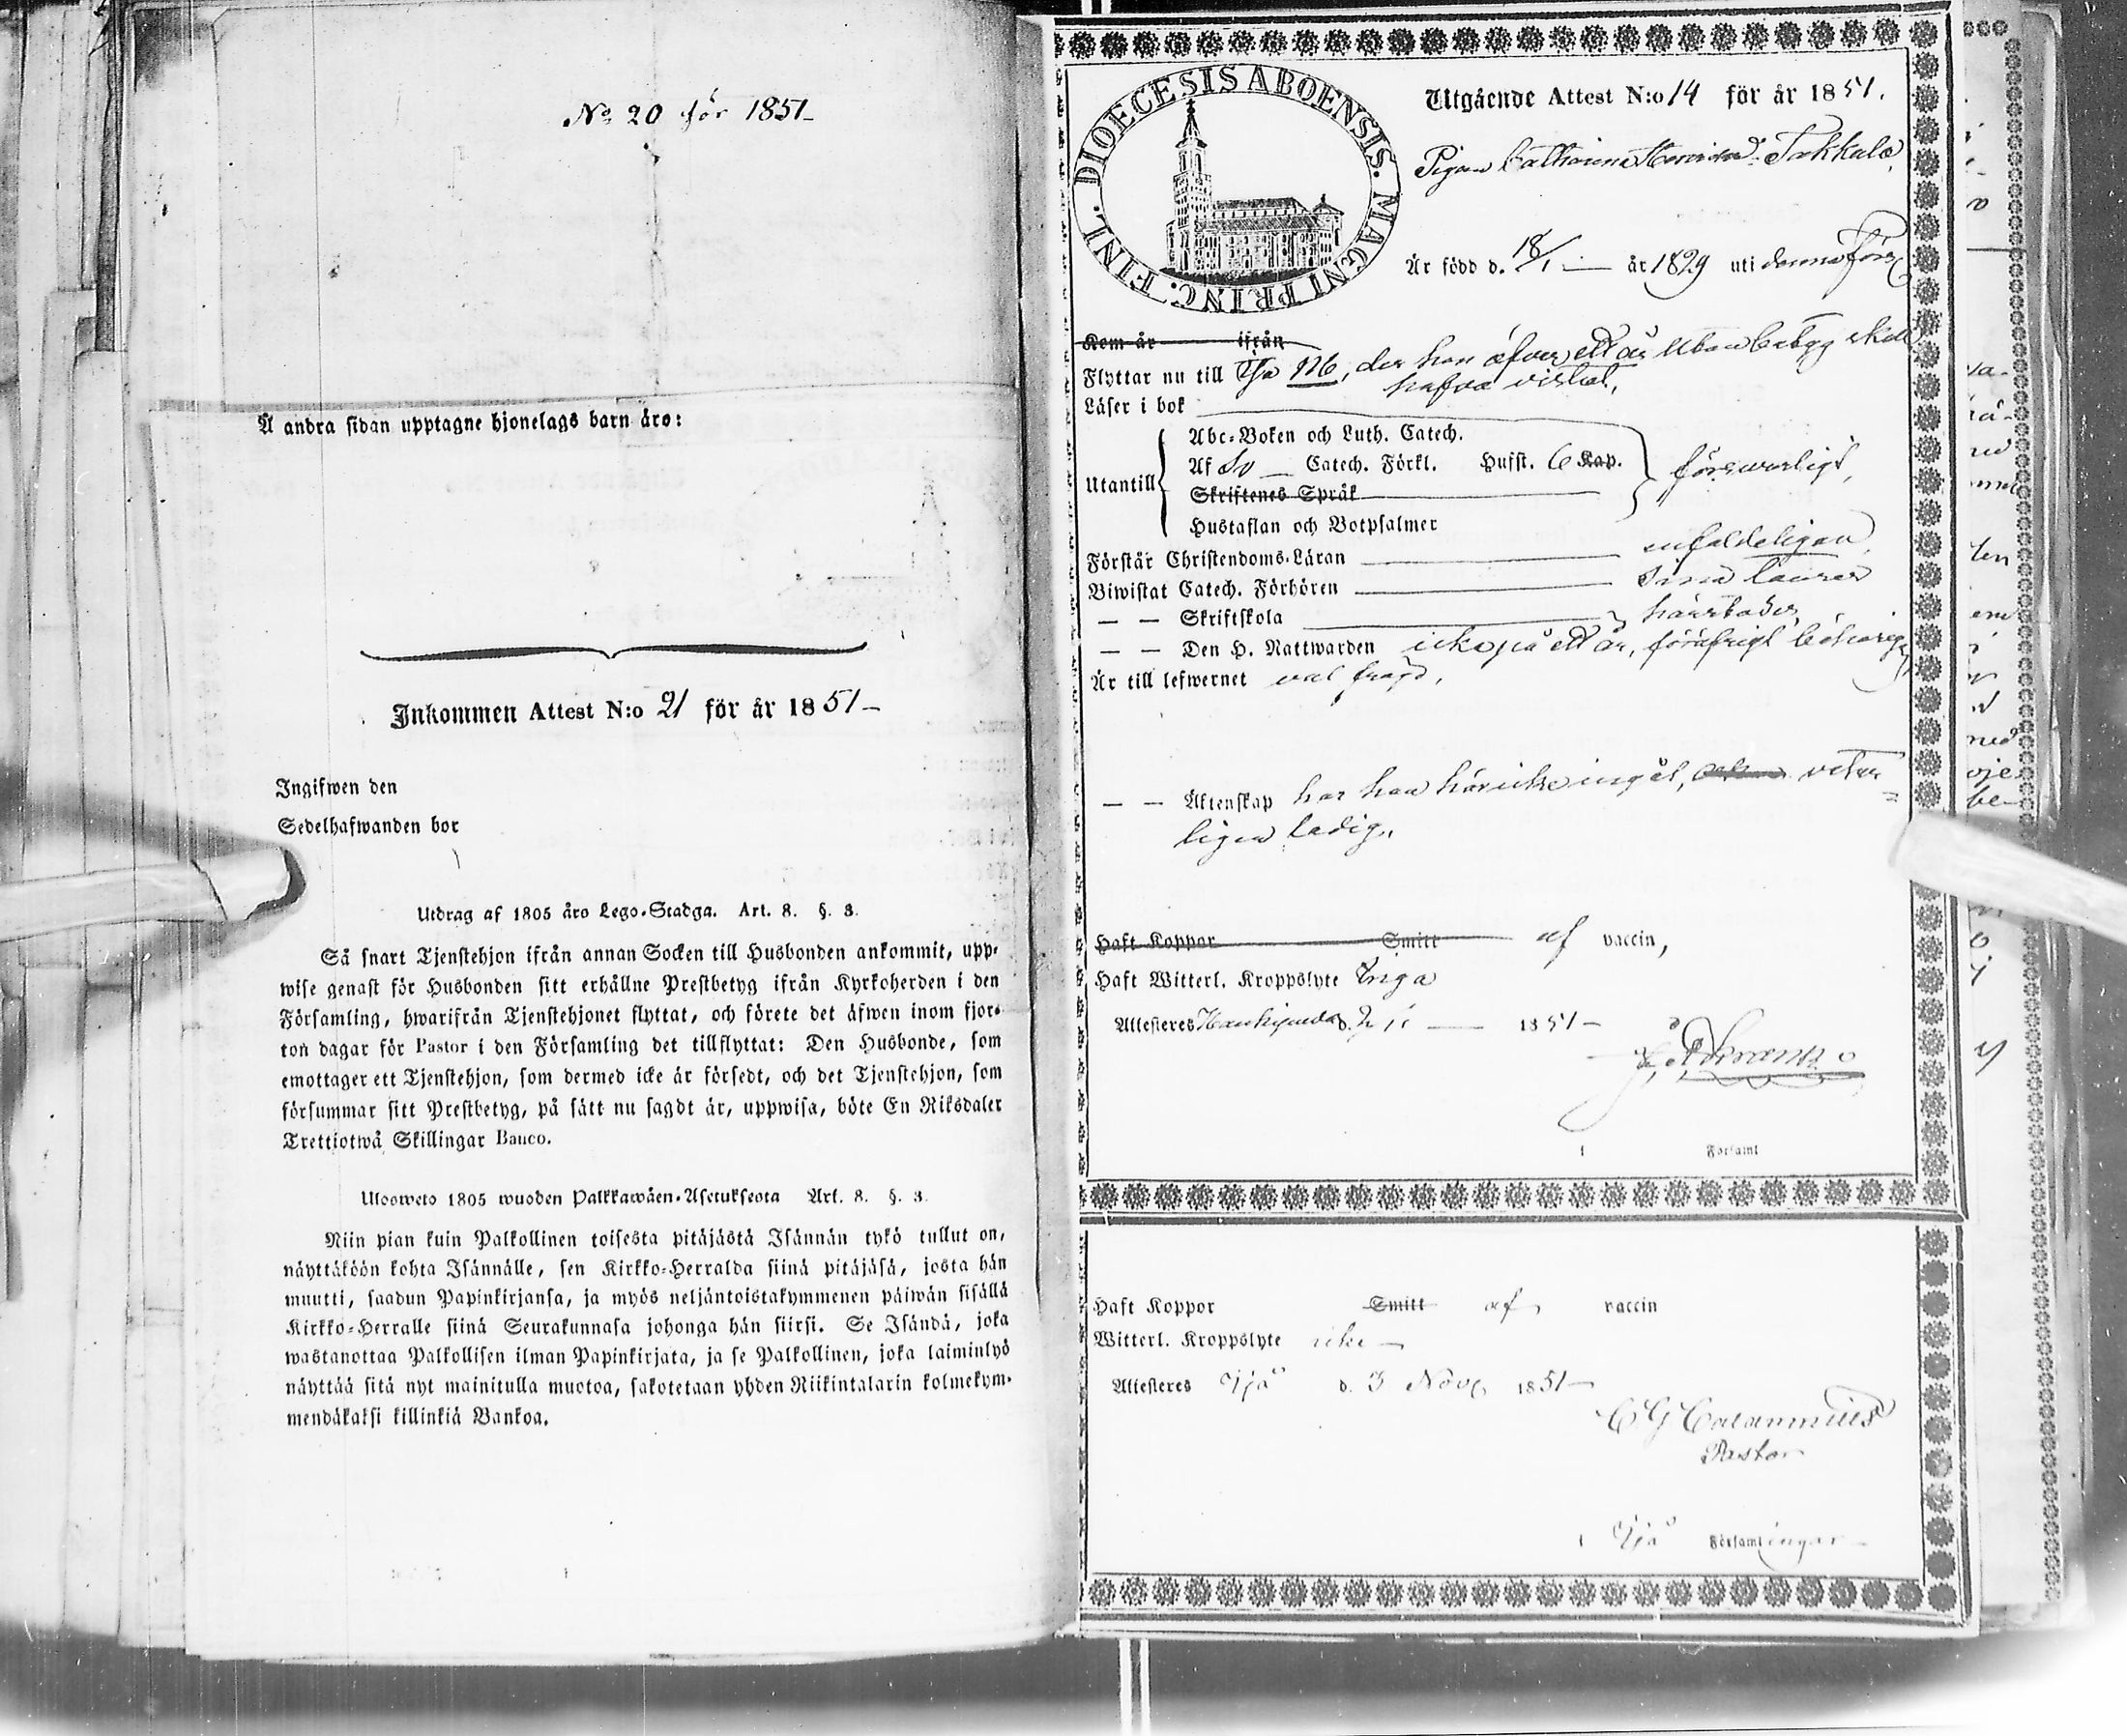 No 20 för 1851
Å andra sidan upptagne hjonelags barn äro:
Inkommen Attest N:o 21 för år 1851
Ingifwen den
Sedelhafwanden bor
Utdrag af 1805 åro Lego-Stadga. Art. 8. §. 3.
Så snart Tjenstehjon ifrån annan Socken till Husbonden ankommit, upp-
wise genast för Husbonden sitt erhållne Prestbetyg ifrån Kyrkoherden i den
Församling, hwarifrån Tjenstehjonet flyttat, och förete det äfwen inom fjor-
ton dagar för Pastor i den Församling det tillflyttat: Den Husbonde, som
emottager ett Tjenstehjon, som dermed icke är försedt, och det Tjenstehjon, som
försummar sitt Prestbetyg, på sätt nu sagdt är, uppwisa, böte En Riksdaler
Trettiotwå Skillingar Banco.
Ulosweto 1805 wuoden Palkkawäen-Asetuksesta Art. 8. §. 3.
Niin pian kuin Palkollinen toisesta pitäjästä Isännän tykö tullut on,
näyttäköön kohta Isännälle, sen Kirkko-Herralda siinä pitäjäsä, josta hän
muutti, saadun Papinkirjansa, ja myös neljäntoistakymmenen päiwän sisällä
Kirkko-Herralle siinä Seurakunnasa johonga hän siirsi. Se Isändä, joka
wastanottaa Palkollisen ilman Papinkirjata, ja se Palkollinen, joka laiminlyö
näyttää sitä nyt mainitulla muotoa, sakotetaan yhden Riikintalarin kolmekym-
mendäkaksi killinkiä Bankoa.
DIOECESIS ABOENSIS. MAGNI PRINC. FINL.
Utgående Attest N:o 14 för år 1851.
Pigan Catharina Takkula
Är född d. 18/1 år 1829 uti denna Förs
Kom år ifrån
Flyttar nu till 116, der hon öfver ett år utan betyg skall
hafva vistat.
Läser i bok
Abc-Boken och Luth. Catech.
Utantill Af Sv Catech. Förkl. Husst. 6 Kap. försvarligt,
Skriftenes Språk
Hustaflan och Botpsalmer
Förstår Christendoms-Läran enfaldeligen
Biwistat Catech. Förhören sina
— — Skriftskola
— — Den H. Nattwarden icke på ett år, föröfrigt behörig
Är till lefwernet väl frägd,
— — Äktenskap har hon här icke ingåt, veter-
ligen ledig.
Haft Koppor Smitt af vaccin,
Haft Witterl. Kroppslyte Inga
Attesteres d. 1851
i Församl
Haft Koppor Smitt af vaccin
Witterl. Kroppslyte icke
Attesteres Ijå d. 3 Nov. 1851
C G Calamnius
Pastor
i Ijå Församlingar